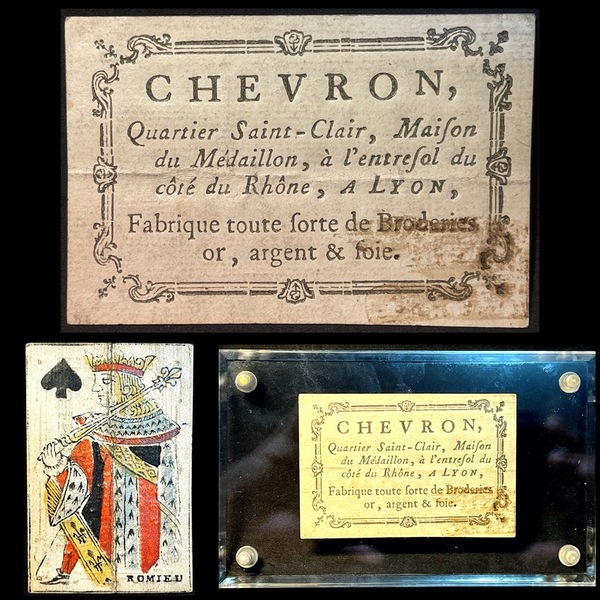 CHEVRON,
Quartier Saint-Clair, Maiſon
du Médaillon, à l'entreſol du
côté du Rhône, A LYON,
Fabrique toute ſorte de Broderies
or, argent & ſoie.
ROMIEU
CHEVRON,
Quartier Saint-Clair, Maiſon
du Médaillon, à l'entreſol du
côté du Rhône, A LYON,
Fabrique toute ſorte de Broderies
or, argent & ſoie.